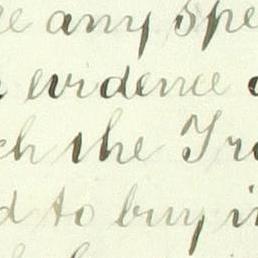 any spe
evidence
ch the Tra
d to buy in